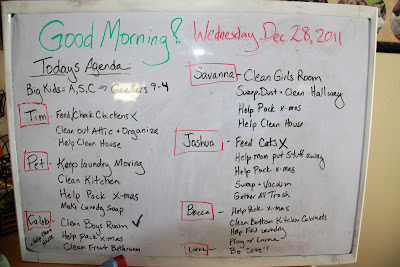 Good Morning! Wednesday, Dec 28, 2011
Todays Agenda
Big Kids = A, S, C → 9-4
Tim - Feed/Check Chickens X
Clean out Attic + Organize
Help Clean House
Pet - Keep Laundry Moving
Clean Kitchen
Help Pack X-mas
Make Laundry Soap
Caleb - Clean Boys Room ✓
Help Pack X-mas
Clean Front Bathroom
Savanna - Clean Girls Room
Sweep, Dust + Clean Hallway
Help Pack X-mas
Help Clean House
Joshua - Feed Cats X
Help mom put Stuff away
Help Pack X-mas
Sweep + Vacuum
Gather All Trash
Becca - Help Pack X-mas
Clean Bottom Kitchen Cabinets
Help Fold Laundry
Play w/ Lorne
Lorne - Be Cute!!